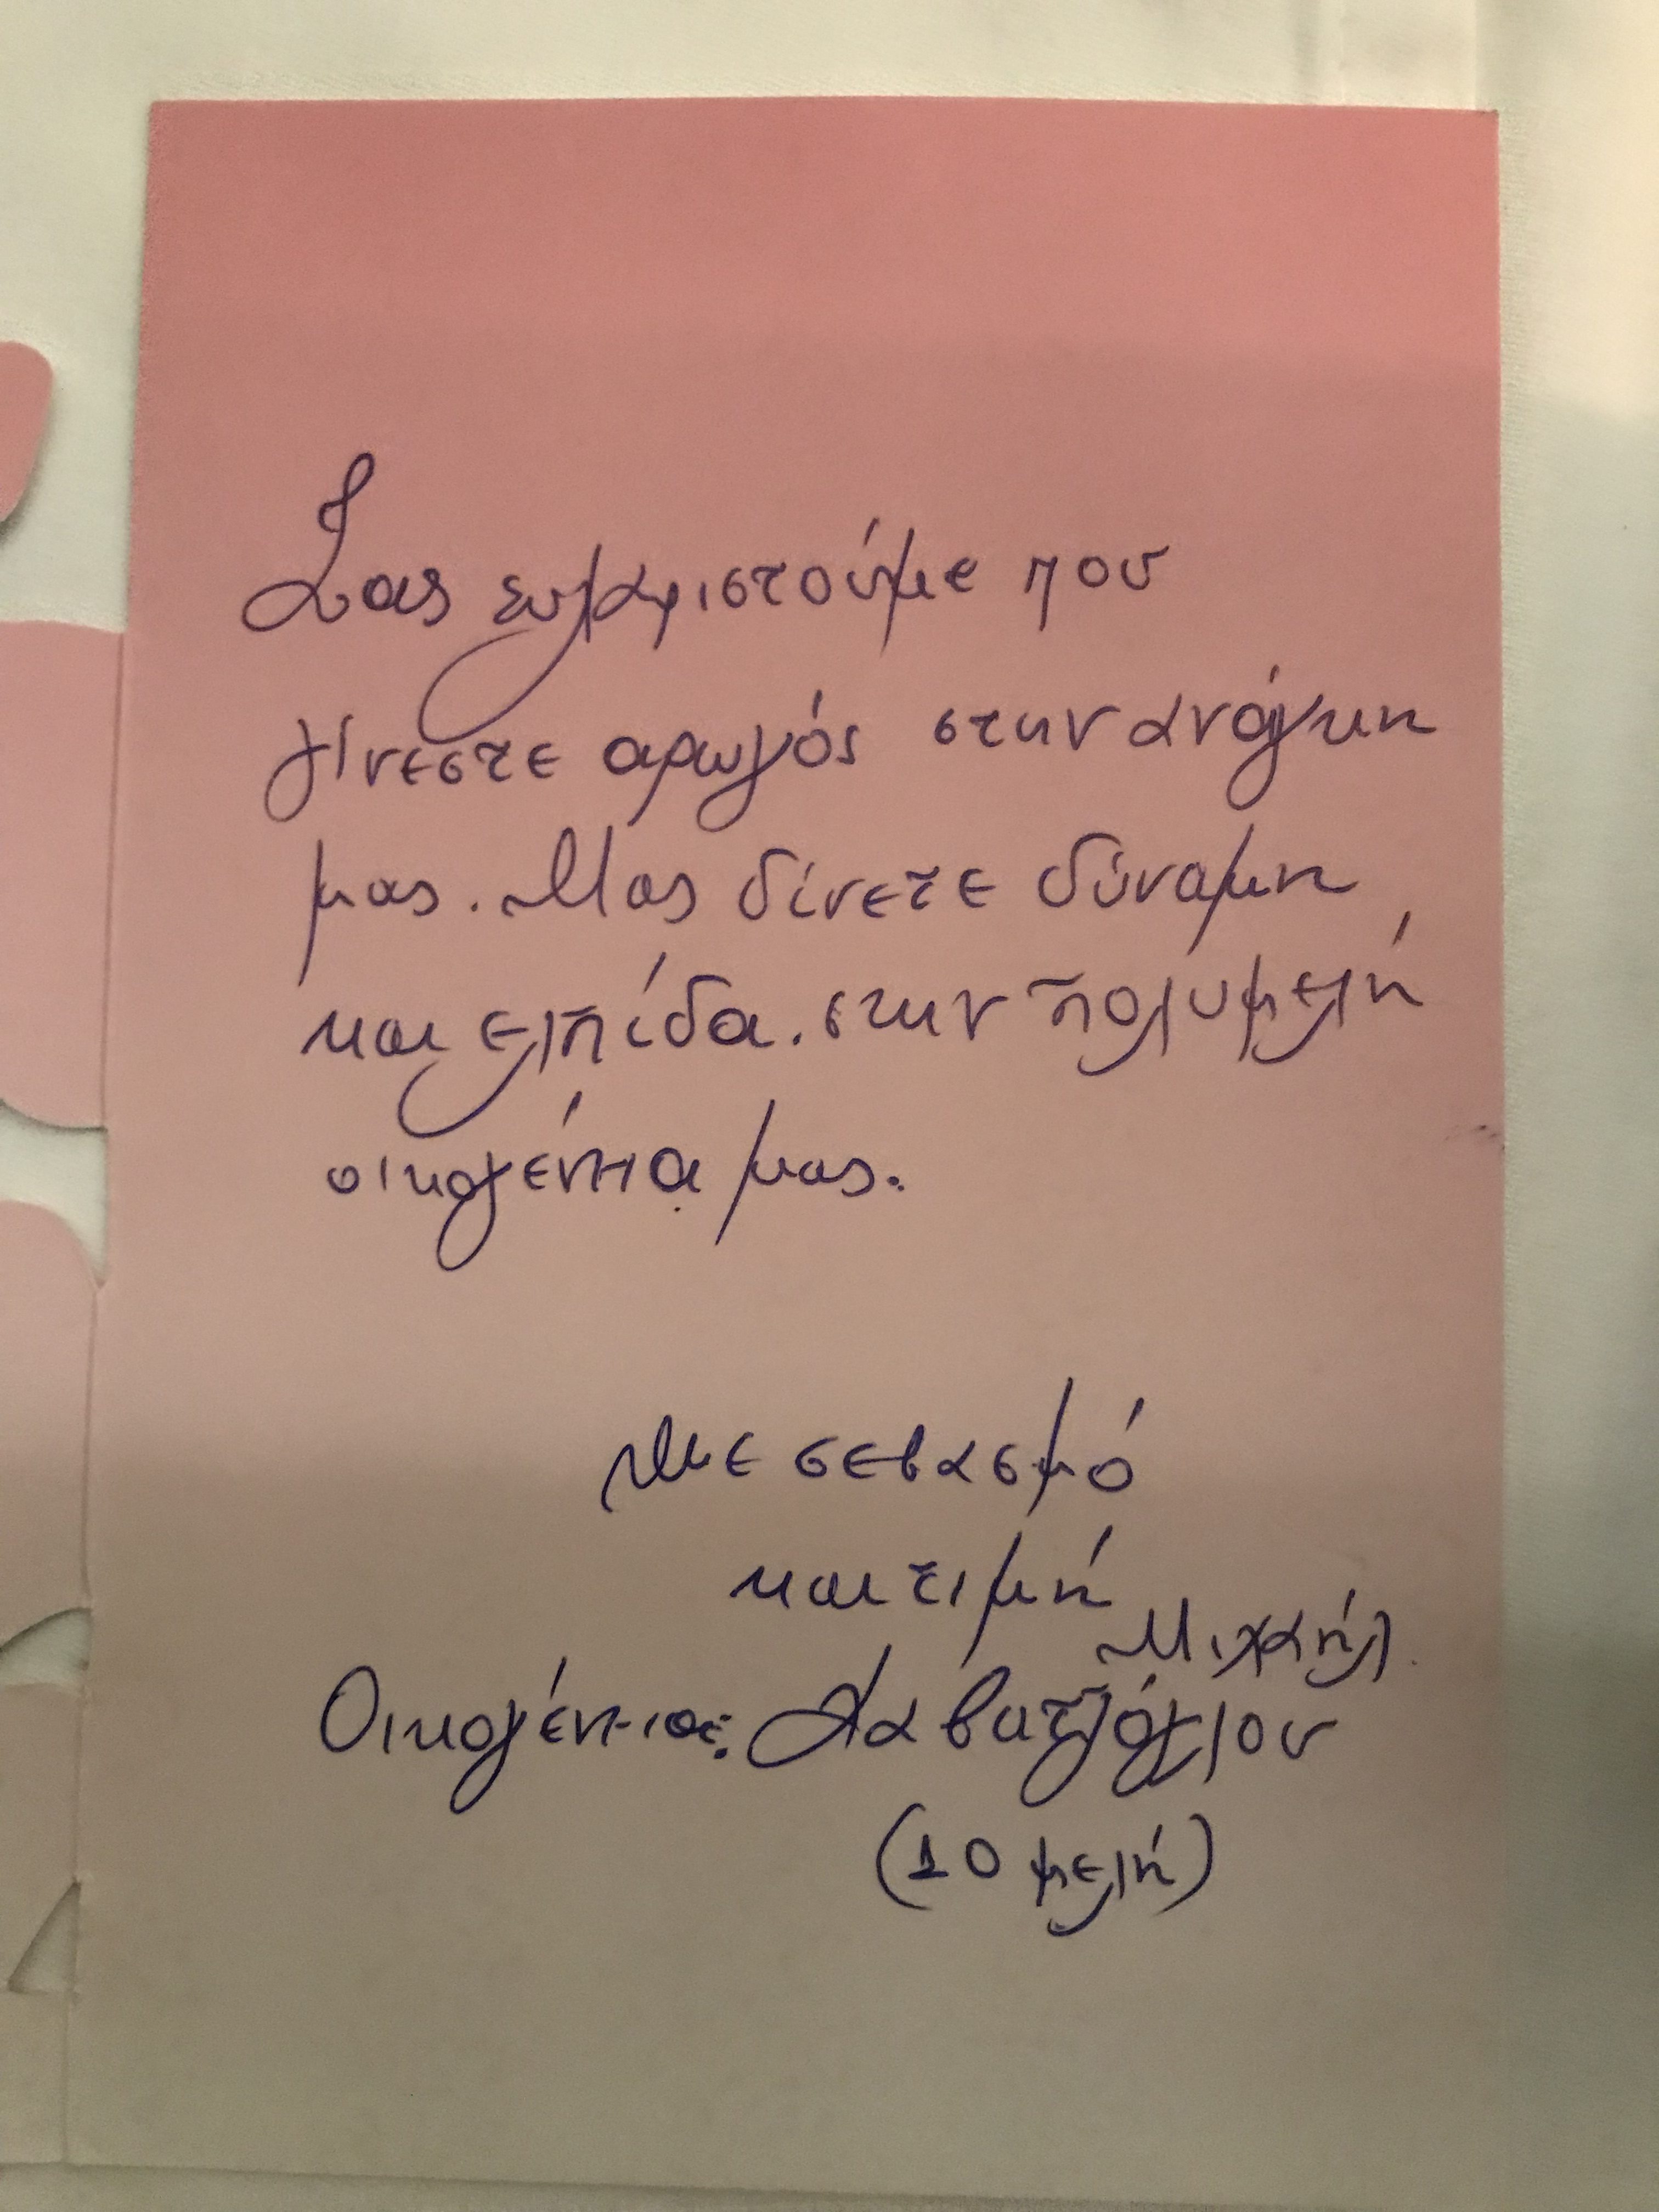 Σας ευχαριστούμε που
γίνεστε αρωγός στην ανάγκη
μας. Μας δίνετε δύναμη
και ελπίδα. στην πολυμελή
οικογένεια μας.
Με σεβασμό
και τιμή
Μιχαήλ
Οικογένεια:
(10 μελή)